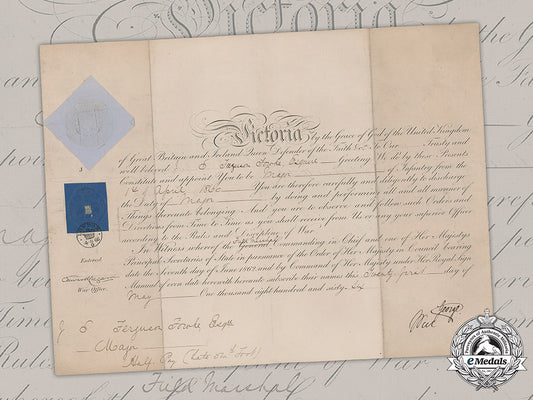 Victoria by the Grace of God of the United Kingdom
of Great Britain and Ireland Queen Defender of the Faith &c. To Our Trusty and
well beloved J E Ferguson Fowke Esquire Greeting We do by these Presents
Constitute and appoint You to be Major of Infantry from the
1st April 1860 You are therefore carefully and diligently to discharge
the Duty of Major by doing and performing all and all manner of
Things thereunto belonging And you are to observe and follow such Orders and
Directions from Time to Time as you shall receive from Us or any your superior Officer
according to the Rules and Discipline of War
In Witness whereof the Field Marshal Commanding in Chief and one of Her Majesty's
Principal Secretaries of State in pursuance of the Order of Her Majesty in Council bearing
date the Seventh day of June 1862 and by Command of Her Majesty under Her Royal Sign
Manual of even date herewith hereunto subscribe their names this Twenty first day of
May One thousand eight hundred and sixty six
Entered
War Office
George
J E Ferguson Fowke Esqre
Major
Half Pay (late Foot)
Field Marshal
eMedals